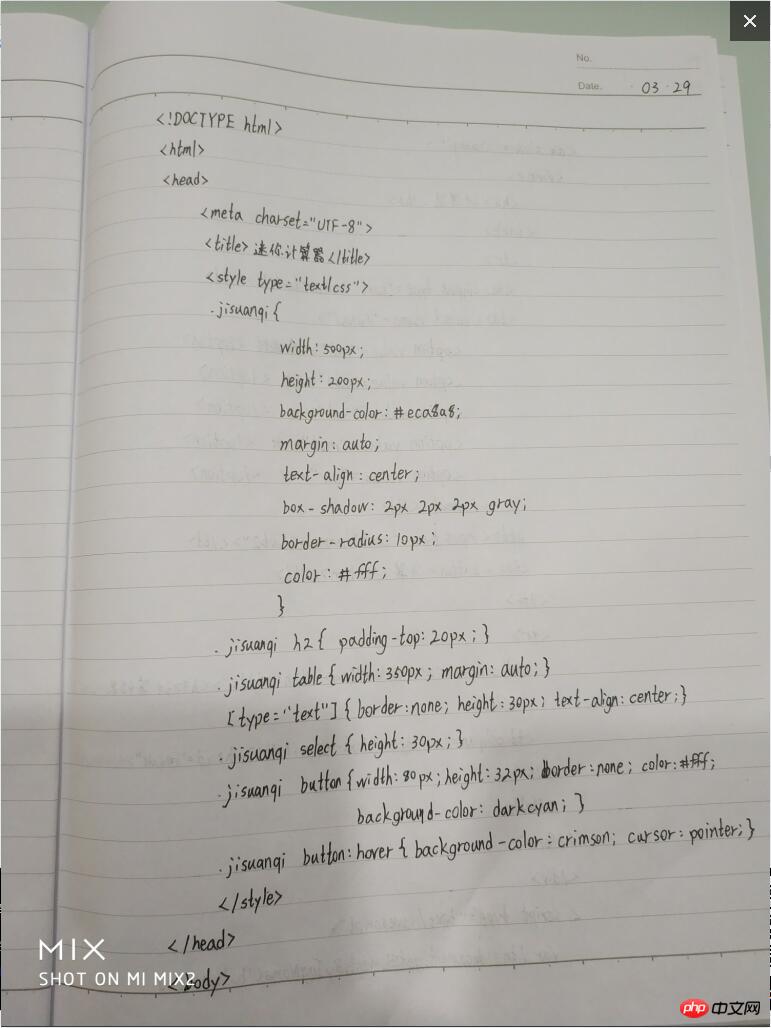 No.
Date. 03 · 29
<!DOCTYPE html>
<html>
<head>
<meta charset="UTF-8">
<title>迷你计算器</title>
<style type="text/css">
.jisuanqi {
width: 500px;
height: 200px;
background-color: #eca8a8;
margin: auto;
text-align: center;
box-shadow: 2px 2px 2px gray;
border-radius: 10px;
color: #fff;
}
.jisuanqi h2 { padding-top: 20px; }
.jisuanqi table { width: 350px; margin: auto; }
[type="text"] { border: none; height: 30px; text-align: center; }
.jisuanqi select { height: 30px; }
.jisuanqi button { width: 80px; height: 32px; border: none; color: #fff;
background-color: darkcyan; }
.jisuanqi button:hover { background-color: crimson; cursor: pointer; }
</style>
</head>
<body>
MIX
SHOT ON MI MIX2
php 中文网